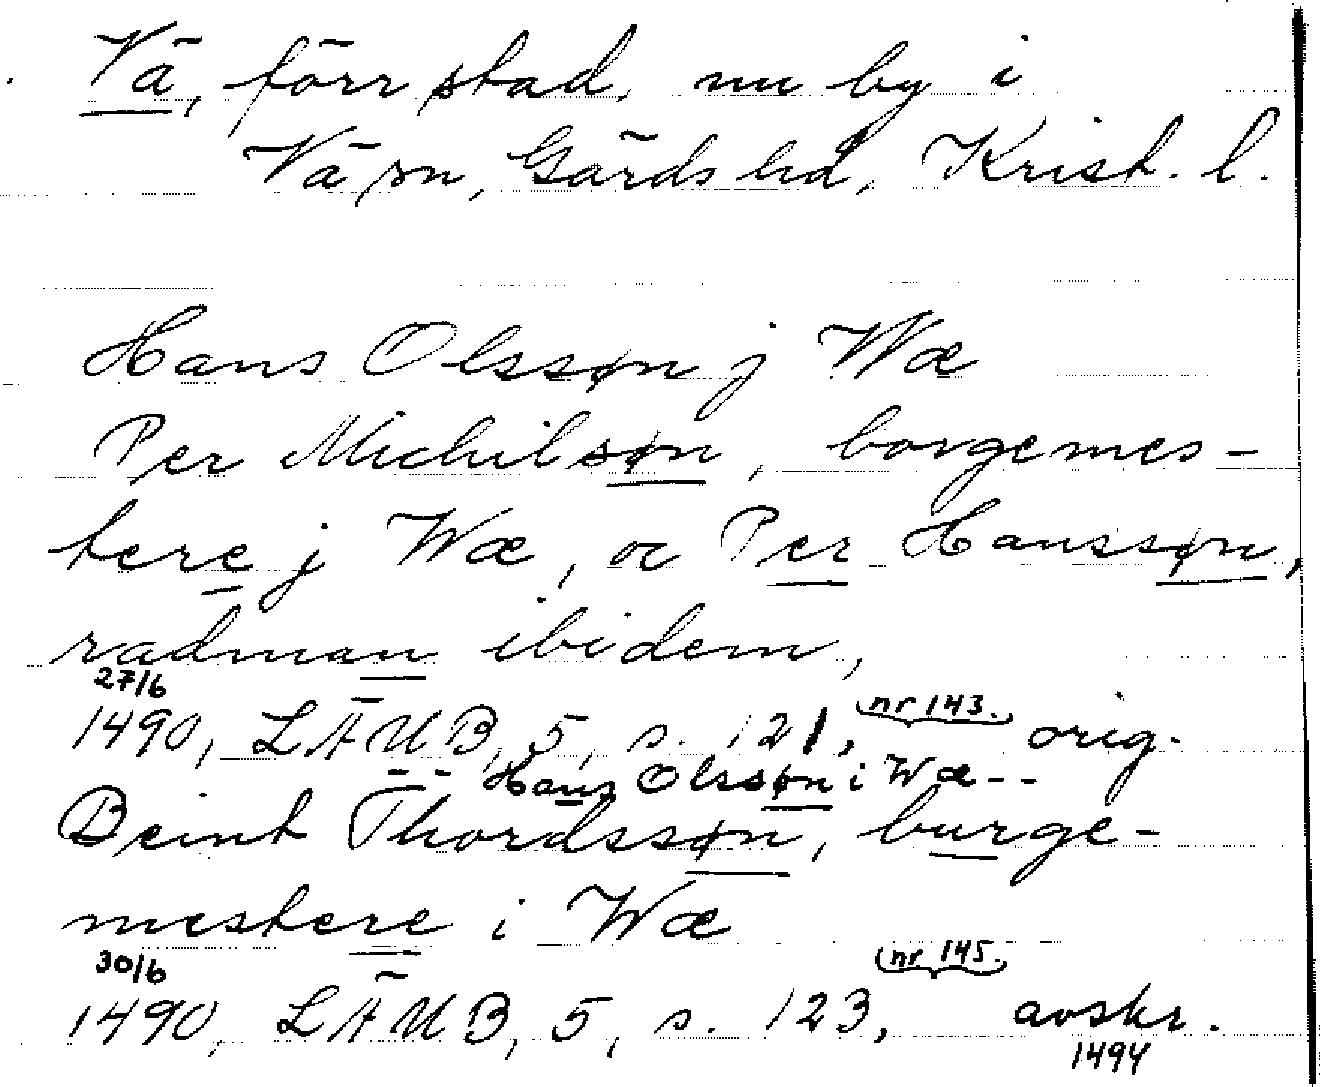 Vä, förr stad, nu by i
Vä sn, Gärds hd, Krist. l.
Hans Olssøn j Wæ
Per Michilsøn, borgemes-
tere j Wæ, oc Per Hanssøn,
radman ibidem,
27/6
1490, LÄUB, 5, s. 121, nr 143. orig.
Hans Olssøn i Wæ--
Beint Thordssøn, burge-
mestere i Wæ
30/6
1490, LÄUB, 5, s. 123, nr 145. avskr.
1494